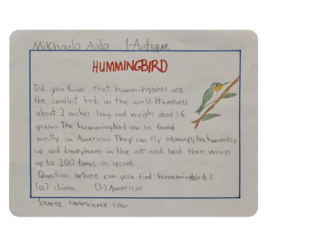 Mikhaela Aida 1-Antique
HUMMINGBIRD
Did you know that hummingbirds are
the smallest birds in the world? It measures
about 2 inches long and weighs about 1.6
grams. The hummingbird can be found
mostly in Americas. They can fly sideways,
up and down, hover in the air and beat their wings
up to 200 times a second.
Question: Where can you find hummingbirds?
(a) china (b) Americas
Source: